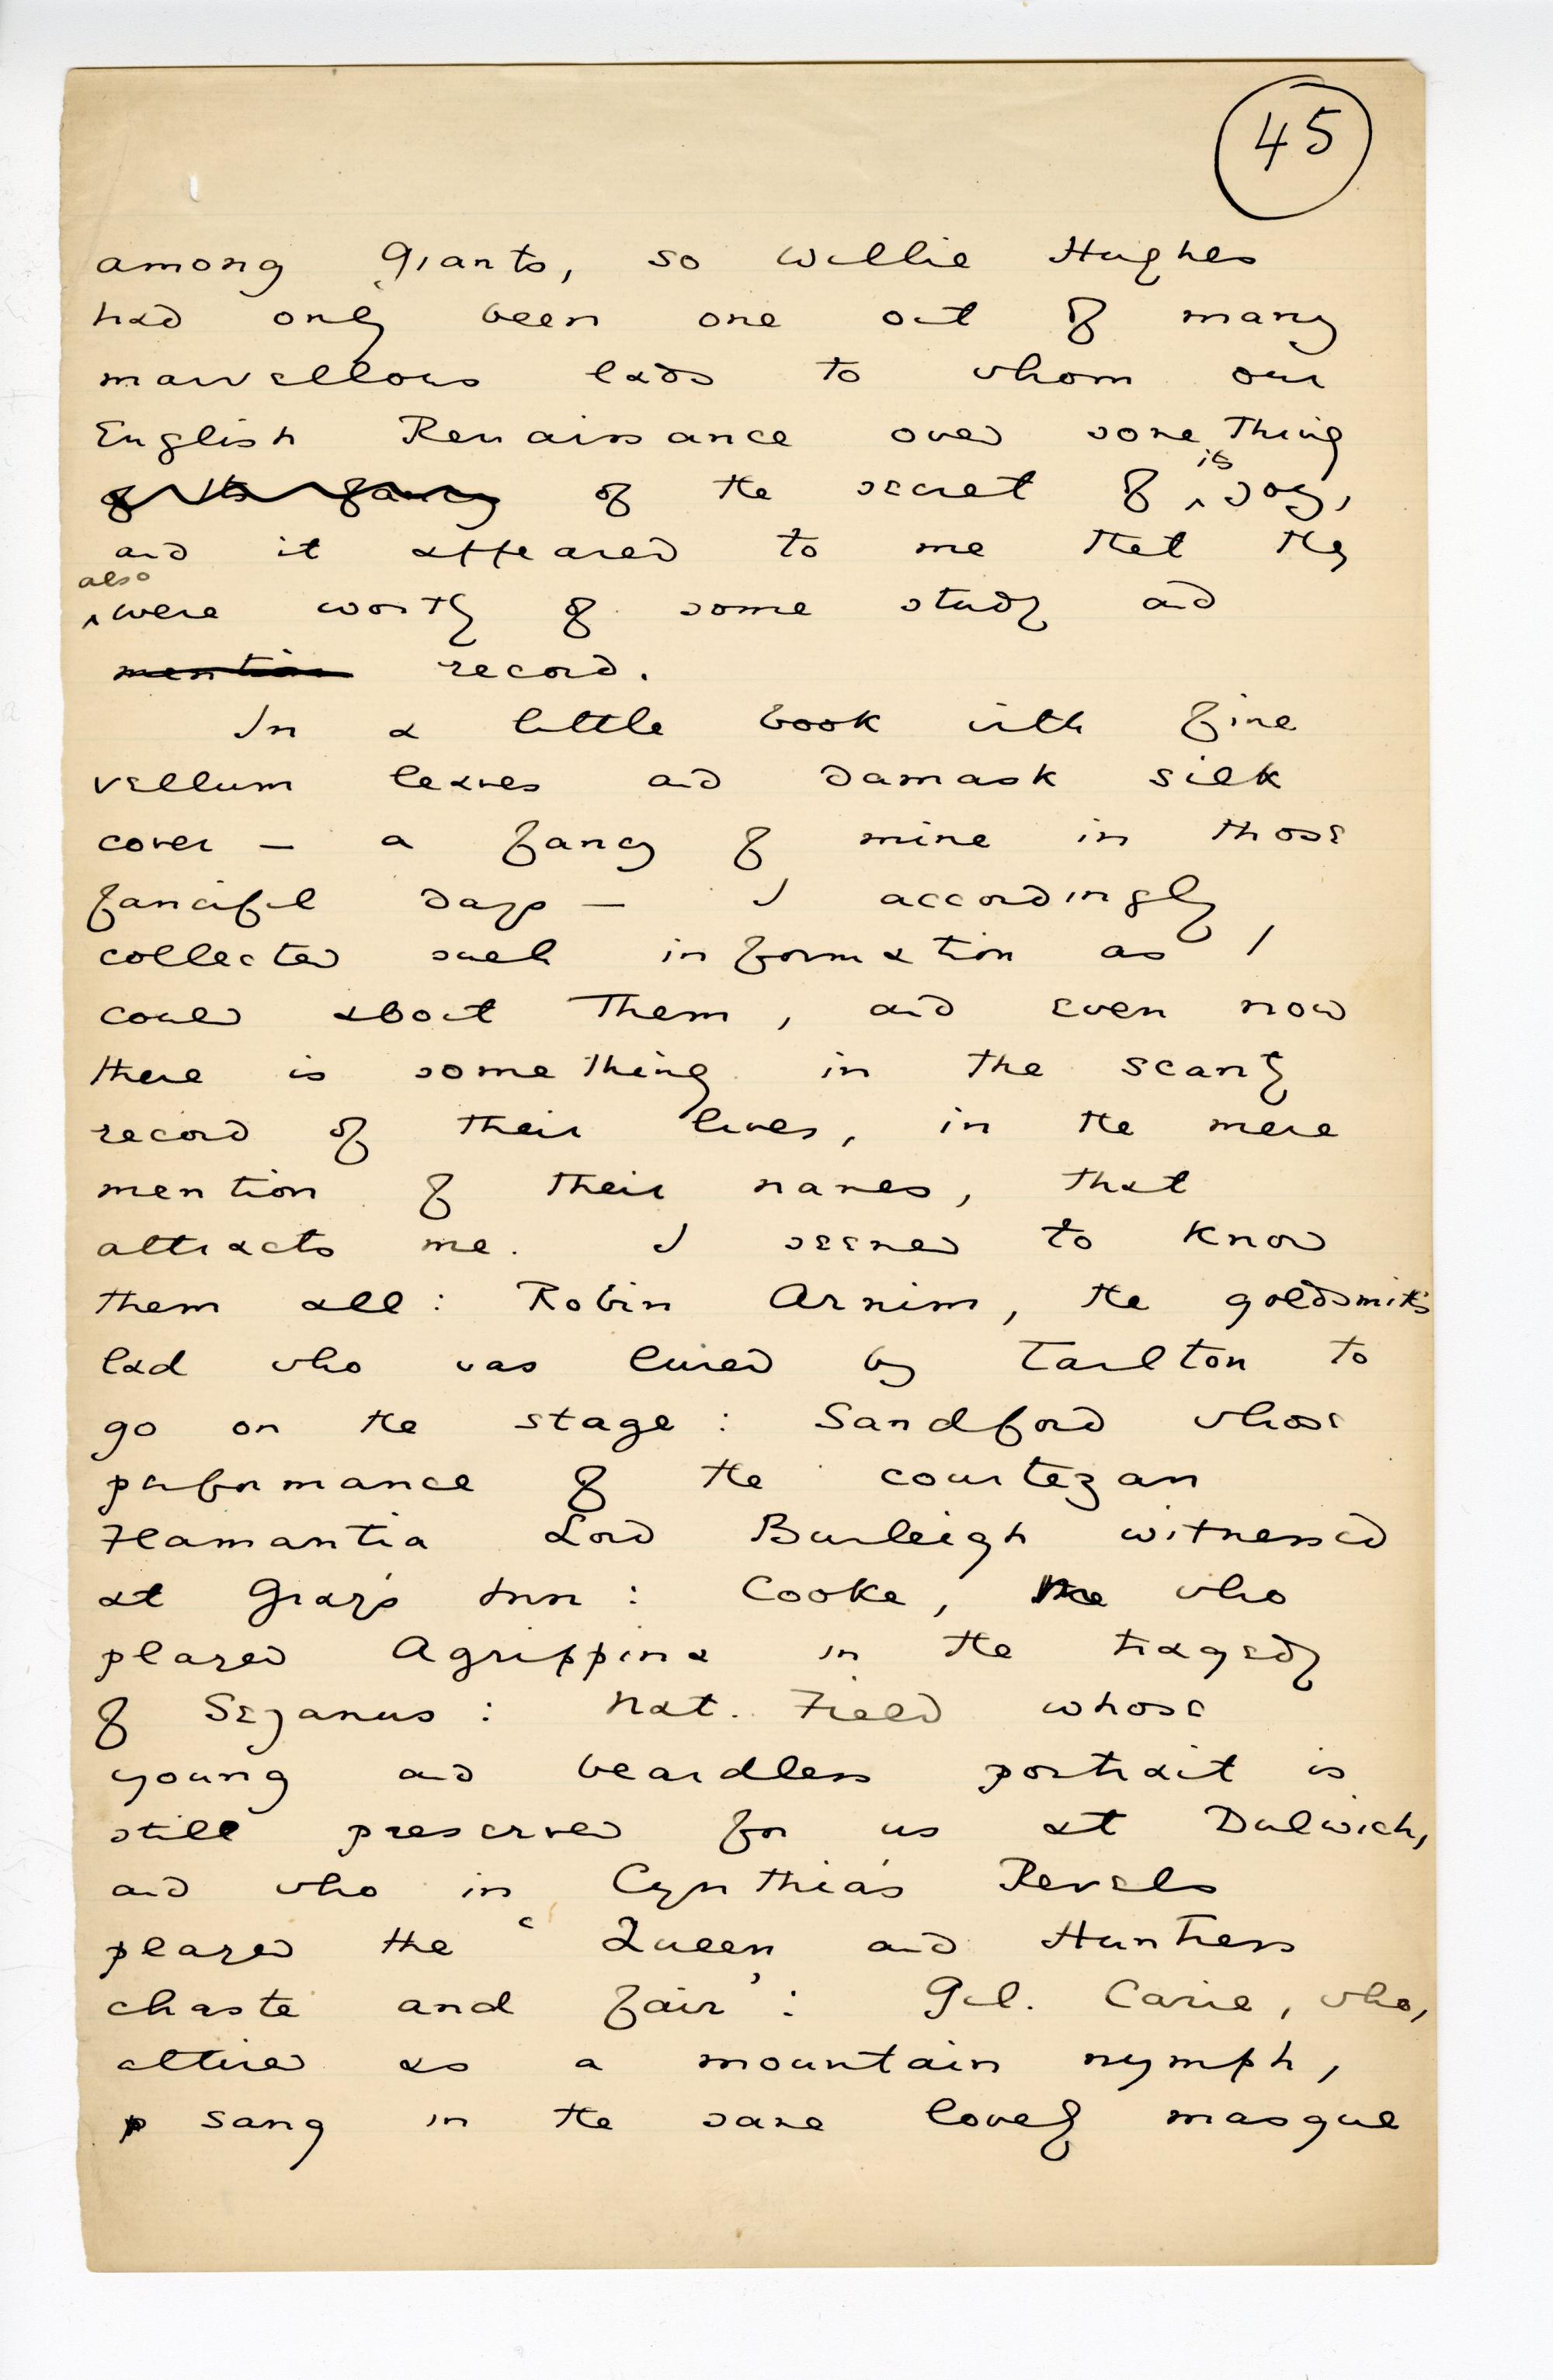 45
among giants, so Willie Hughes
had only been one out of many
marvellous lads to whom our
English Renaissance owed something
of its fancy of the secret of its joy,
and it appeared to me that they
also were worthy of some study and
mention record.
In a little book with fine
vellum leaves and damask silk
cover — a fancy of mine in those
fanciful days — I accordingly
collected such information as I
could about them, and even now
there is something in the scanty
record of their lives, in the mere
mention of their names, that
attracts me. I seemed to know
them all: Robin Armin, the goldsmith's
lad who was lured by Tarlton to
go on the stage: Sandford whose
performance of the courtezan
Flamantia Lord Burleigh witnessed
at Gray's Inn: Cooke, who
played Agrippina in the tragedy
of Sejanus: Nat. Field whose
young and beardless portrait is
still preserved for us at Dulwich,
and who in Cynthia's Revels
played the 'Queen and Huntress
chaste and fair': Gil. Carie, who,
attired as a mountain nymph,
p sang in the same lovely masque